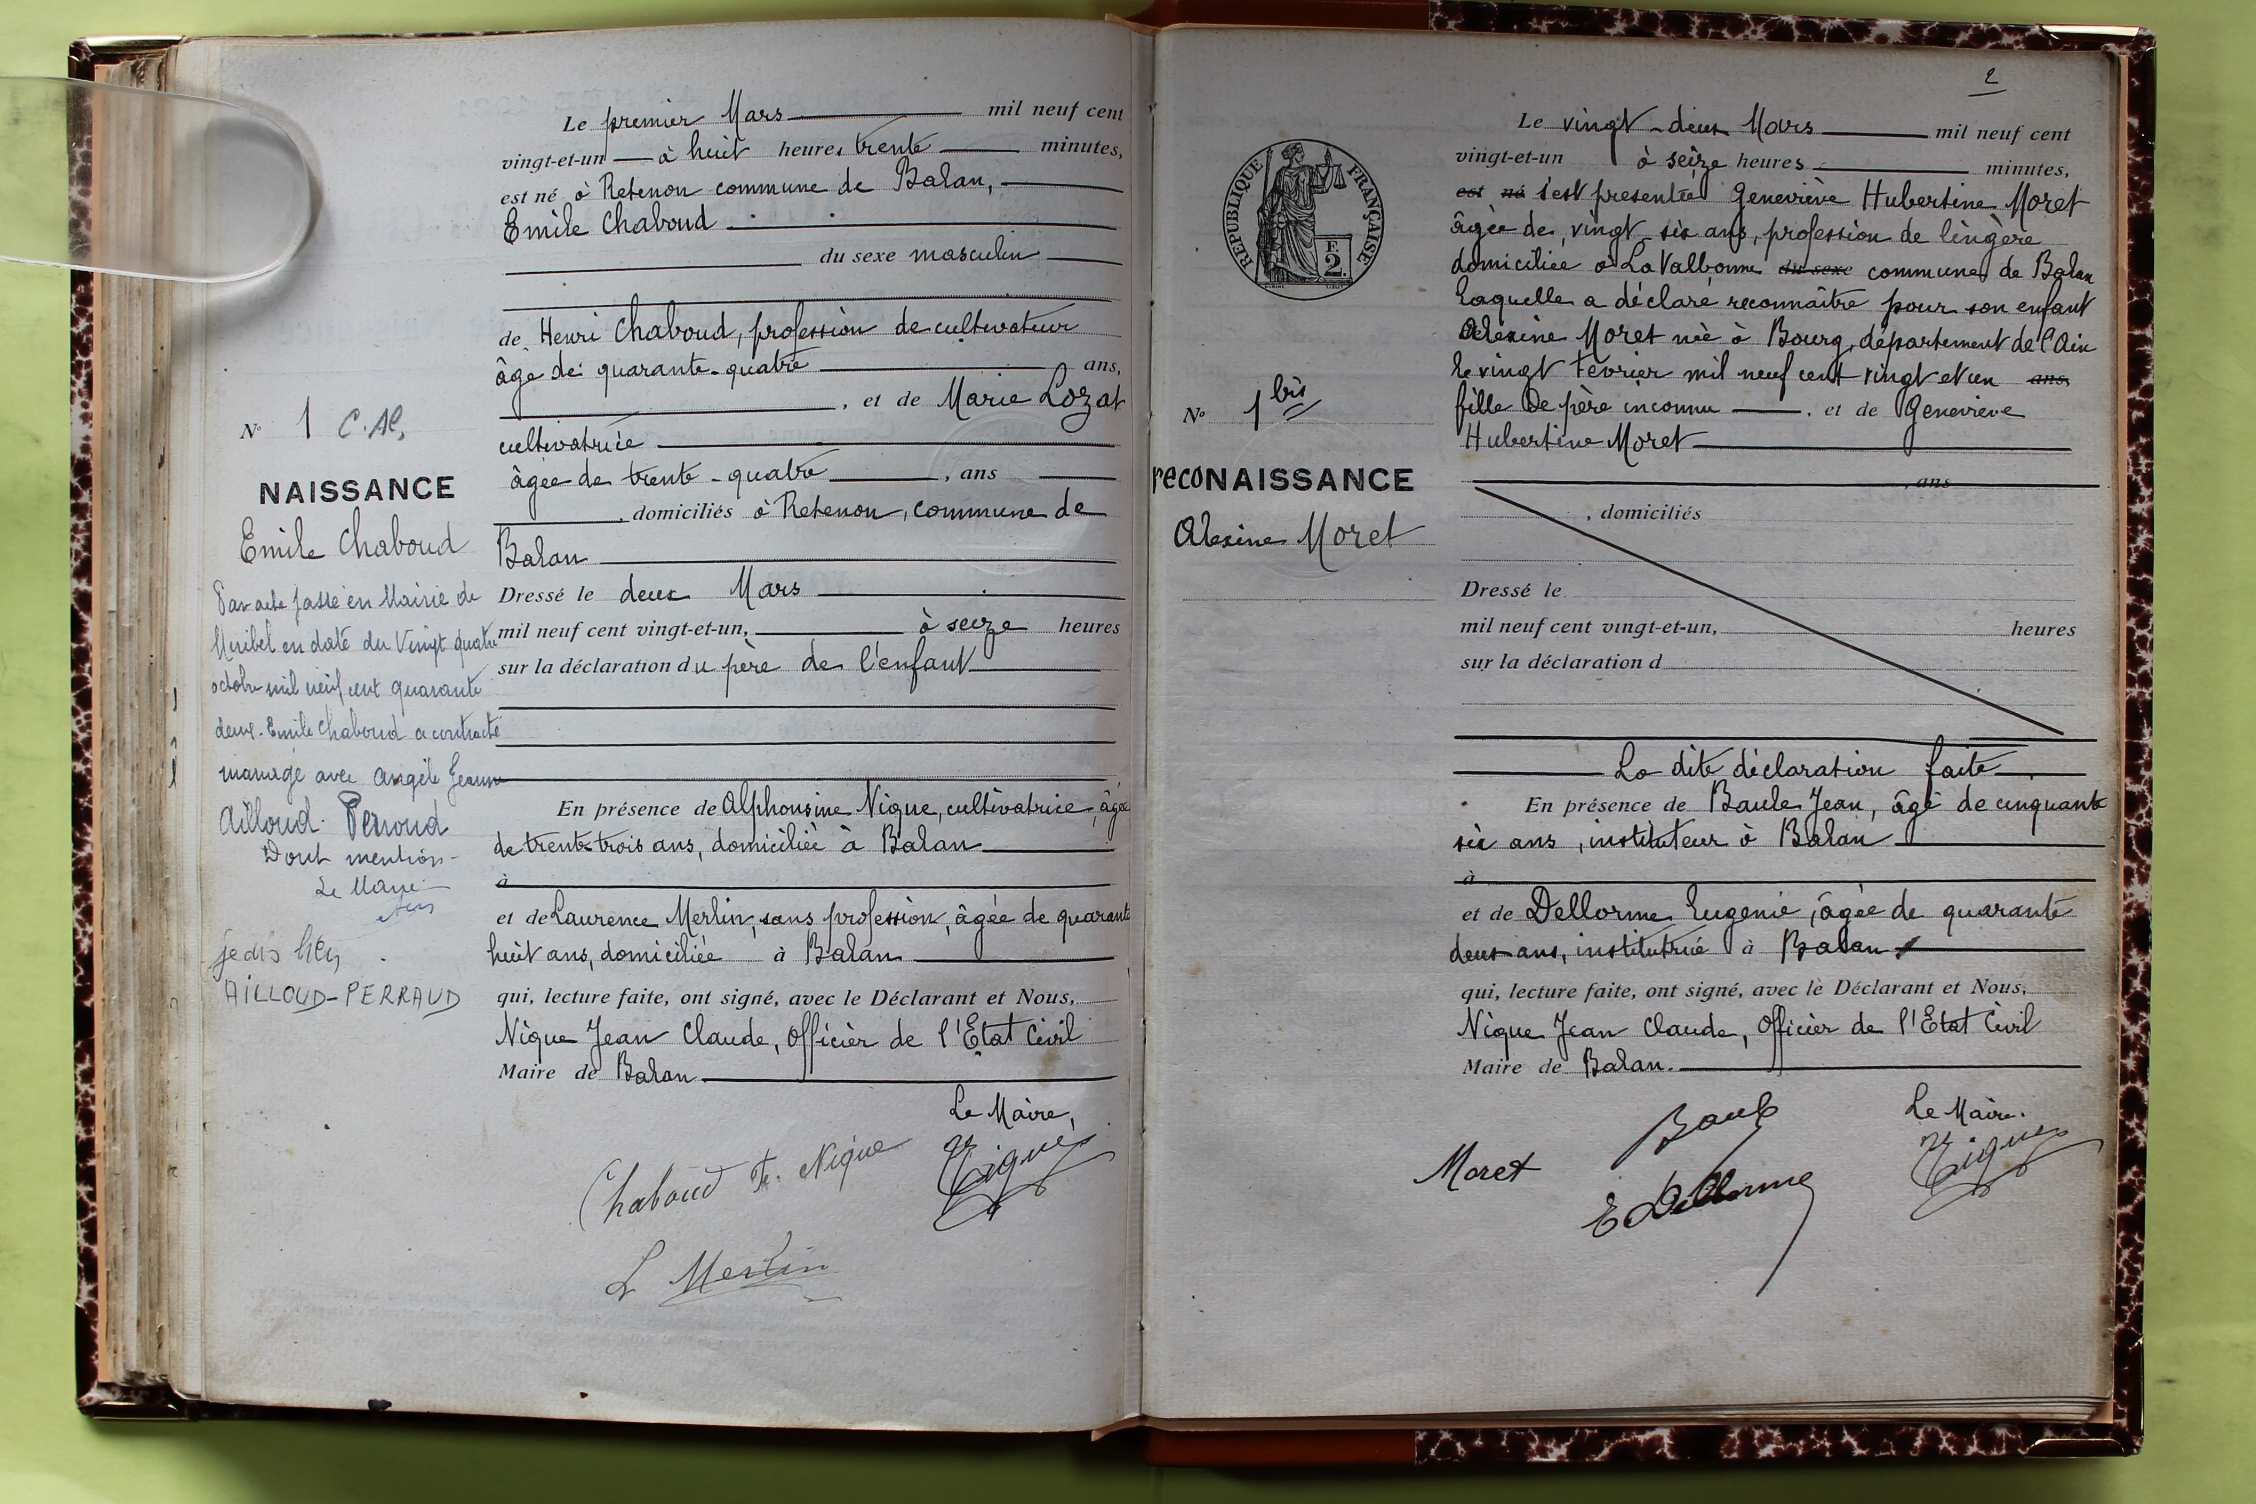 Le premier Mars mil neuf cent
vingt-et-un à huit heures trente minutes,
est né à Retenon commune de Balan,
Emile Chaboud
du sexe masculin
de Henri Chaboud, profession de cultivateur
âgé de quarante-quatre ans,
, et de Marie Lozat
cultivatrice
âgée de trente-quatre, ans
, domiciliés à Retenon, commune de
Balan
Dressé le deux Mars
mil neuf cent vingt-et-un, à seize heures
sur la déclaration du père de l'enfant
En présence de Alphonsine Nique, cultivatrice, âgée
de trente-trois ans, domiciliée à Balan
à
et de Laurence Merlin, sans profession, âgée de quarante
huit ans, domiciliée à Balan
qui, lecture faite, ont signé, avec le Déclarant et Nous,
Nique Jean Claude, Officier de l'Etat Civil
Maire de Balan
Le Maire,
Chaboud Fe. Nique Nique
L Merlin
N° 1 C.Al,
NAISSANCE
Emile Chaboud
Par acte passé en Mairie de
Miribel en date du Vingt quatre
octobre mil neuf cent quarante
deux. Emile Chaboud a contracté
mariage avec Angèle Jeanne
Ailloud. Perroud
Dont mention
Le Maire
AILLOUD-PERRAUD
2
RÉPUBLIQUE FRANÇAISE
F.
2
N° 1 bis
recoNAISSANCE
Alexine Moret
Le vingt-deux Mars mil neuf cent
vingt-et-un à seize heures minutes,
est né s'est présentée Geneviève Hubertine Moret
âgée de, vingt-six ans, profession de lingère
domiciliée à La Valbonne du sexe commune de Balan
Laquelle a déclaré reconnaître pour son enfant
Alexine Moret née à Bourg, département de l'Ain
le vingt Février mil neuf cent vingt et un ans,
fille De père inconnu, et de Geneviève
Hubertine Moret
, ans
, domiciliés
Dressé le
mil neuf cent vingt-et-un, heures
sur la déclaration d
La dite déclaration faite
En présence de Baule Jean, âgé de cinquante
six ans, instituteur à Balan
à
et de Dellorme Eugenie, âgée de quarante
deux ans, institutrice à Balan
qui, lecture faite, ont signé, avec le Déclarant et Nous,
Nique Jean Claude, Officier de l'Etat Civil
Maire de Balan.
Le Maire.
Moret Baule Nique
E Dellorme